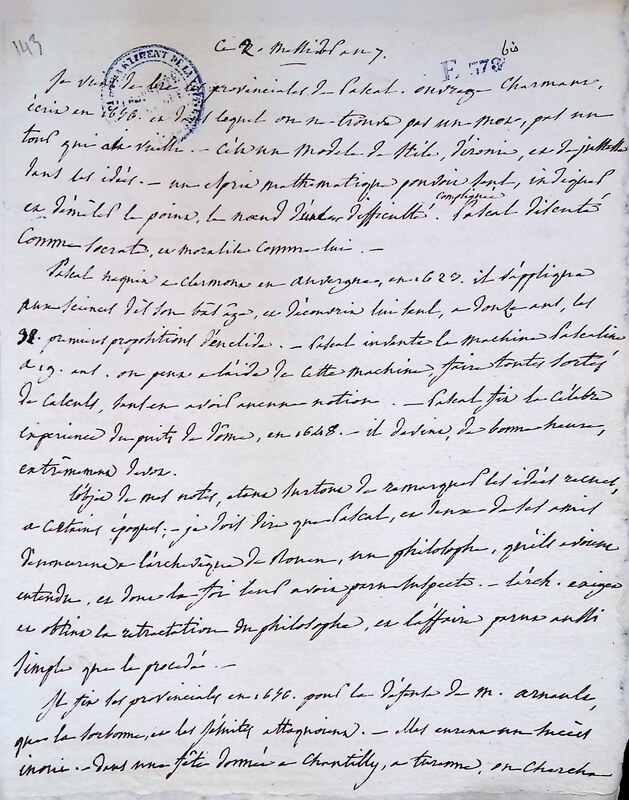 143
Ce 2. Messidor an 7.
bis
E 578
Je viens de lire les provinciales de Pascal. ouvrage charmant,
écrit en 1656. et dans lequel on ne trouve pas un mot, pas un
tour qui ait vieilli. — C'est un modele de stile, d'ironie, et de justesse
dans les idées. — un esprit mathematique pouvoit seul, indiquer
et démêler le point, le nœud d'une difficulté compliquée. Pascal discute
comme Socrate, et moralise comme lui. —
Pascal naquit a clermont en auvergne, en 1623. il s'appliqua
aux sciences dès son bas âge, et découvrit lui seul, a douze ans, les
32. premieres propositions d'euclide. — Pascal inventa la machine Pascaline
a 19. ans. on peut a l'aide de cette machine, faire toutes sortes
de calculs, sans en avoir aucune notion. — Pascal fit la célèbre
expérience du puits de dôme, en 1648. — il devint, de bonne heure,
extrêmement devot.
L'objet de mes notes, étant surtout de remarquer les idées recues,
a certains époques; — je dois dire que Pascal, et deux de ses amis
dénoncerent a l'archevêque de Rouen, un philosophe, qu'ils avoient
entendu, et dont la foi leur avoit paru suspecte. — L'arch. exigea
et obtint la retractation du philosophe, et l'affaire parut aussi
simple que le procedé. —
Il fit les provinciales en 1656. pour la défense de m. arnauld,
que la sorbonne, et les jésuites attaquoient. — elles eurent un succès
inoui. — dans une fête donnée a Chantilly, a turenne, on chercha